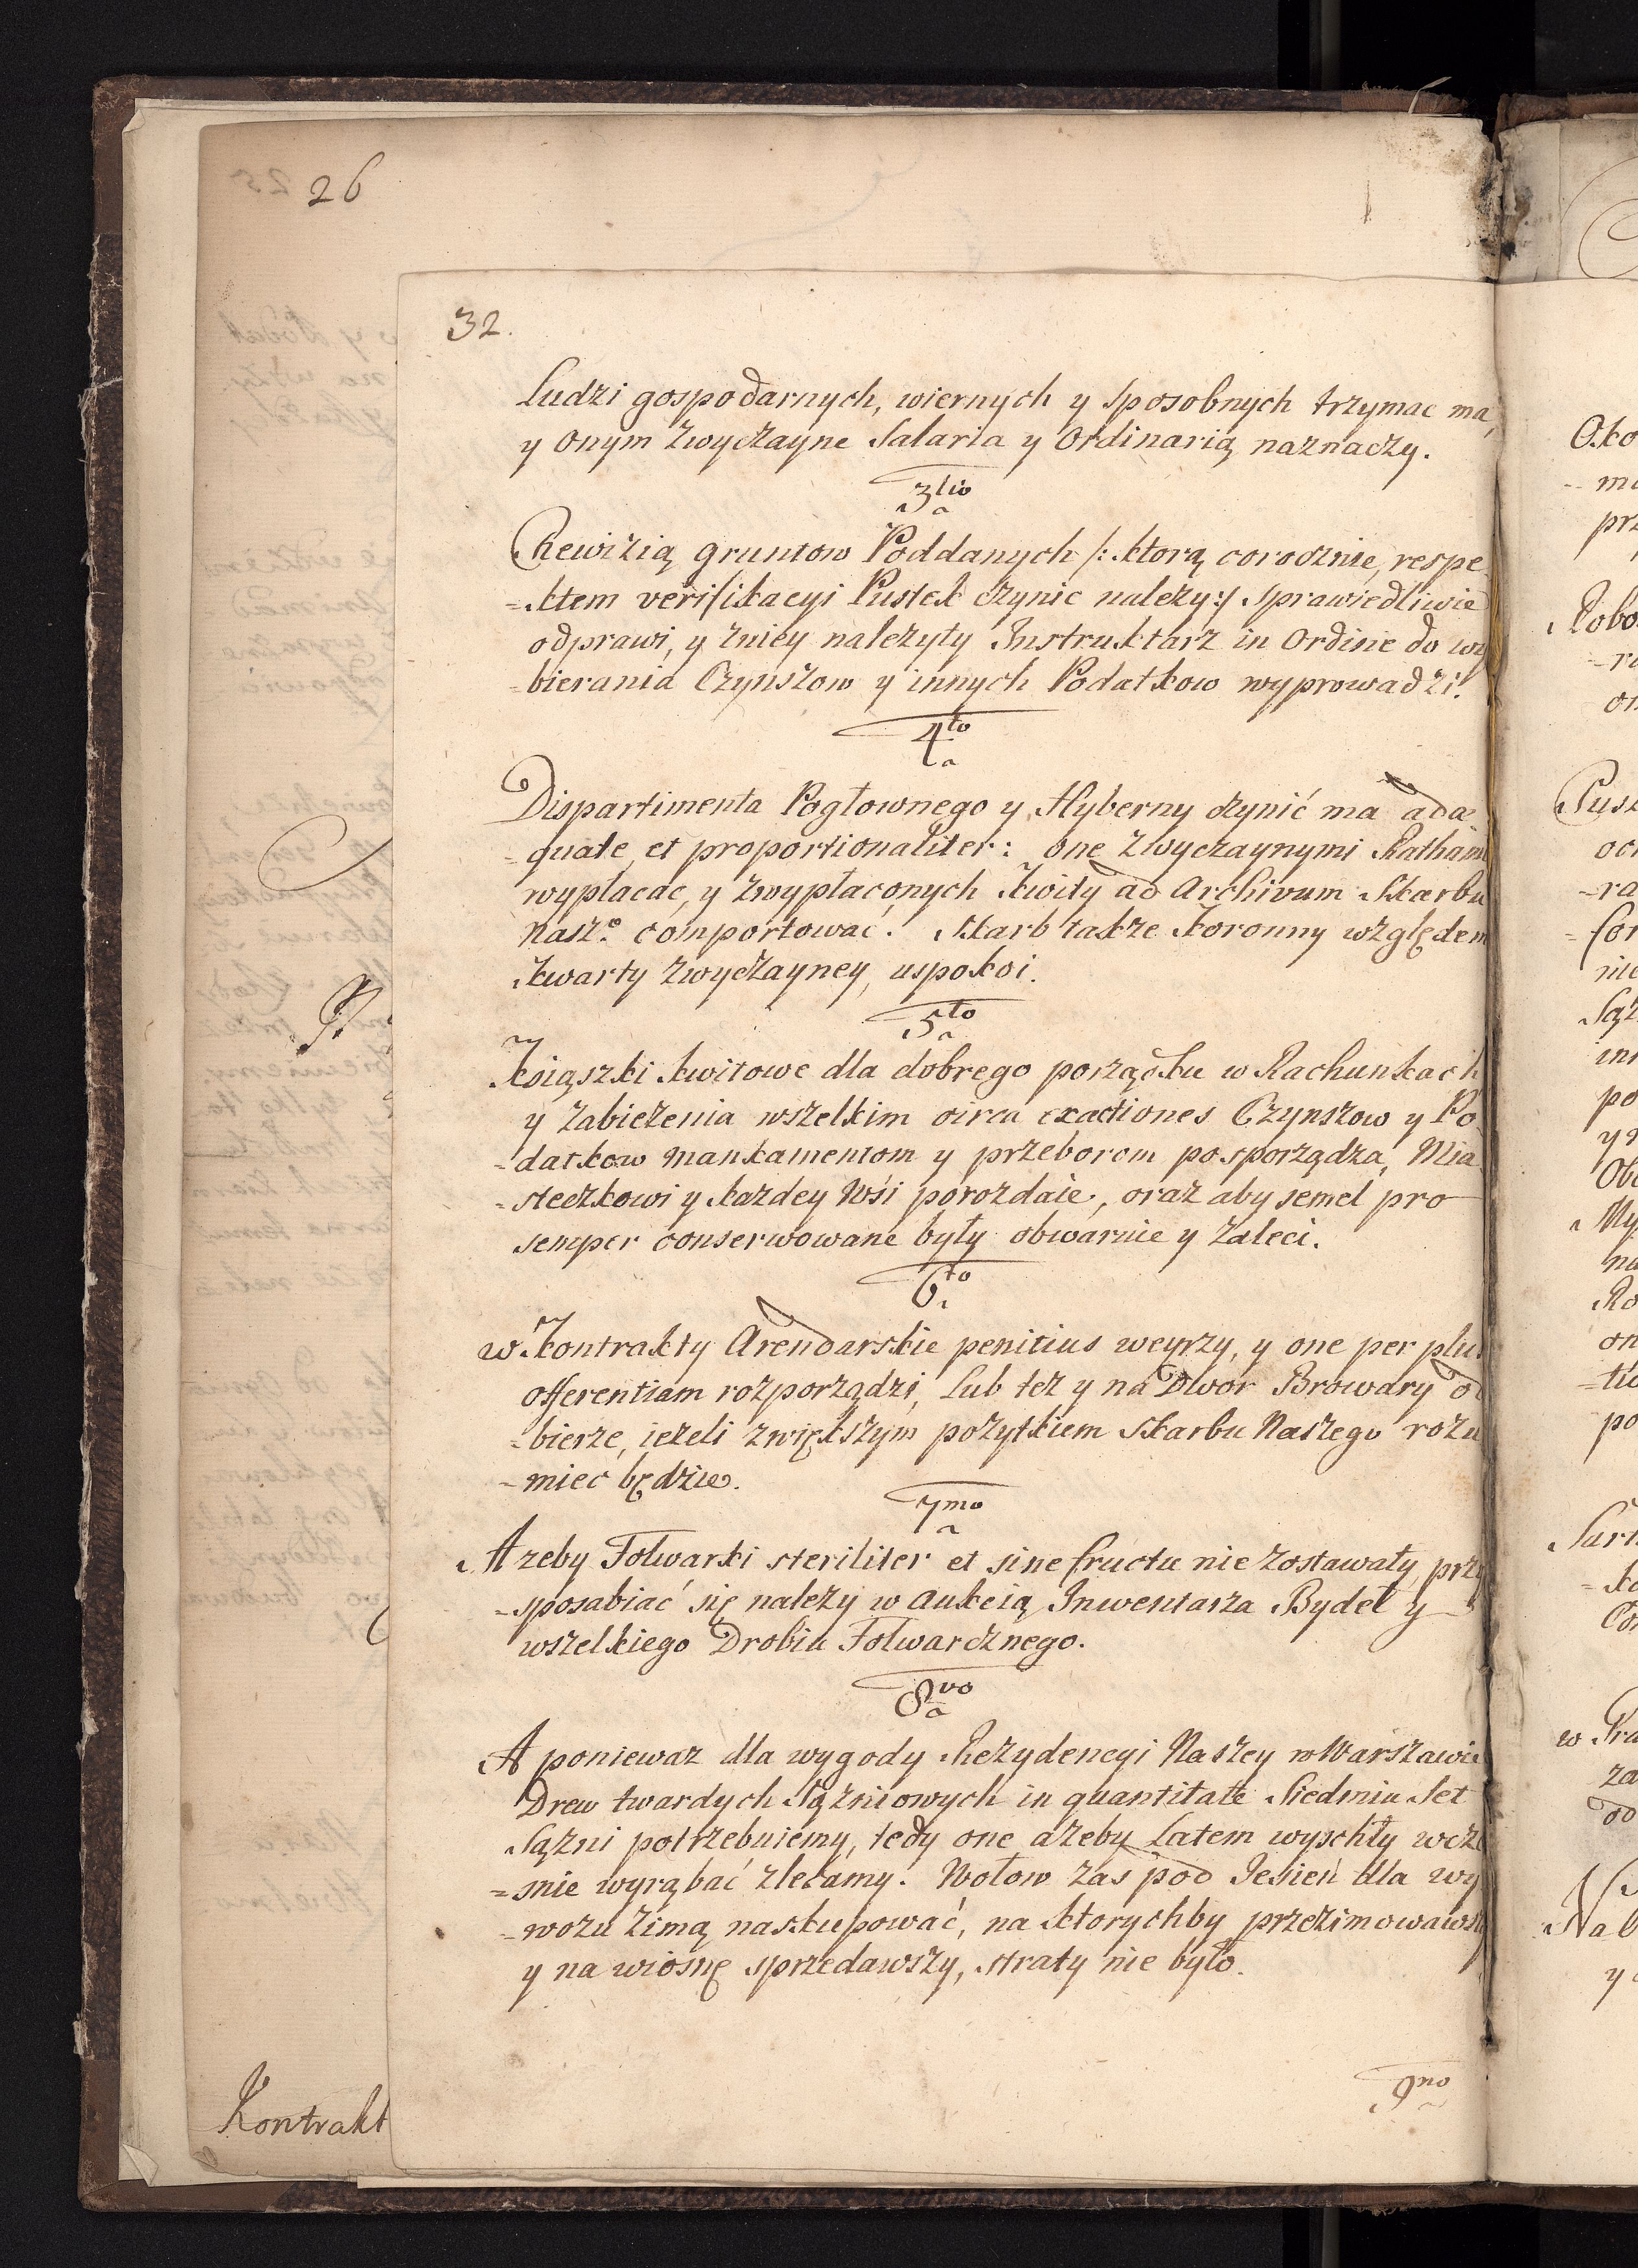 26
32.
Ludzi gospodarnych, wiernych y sposobnych trzymac ma,
y onym zwyczayne Salaria y Ordinarią naznaczy.
3tio
Rewizią gruntow Poddanych /: ktorą corocznie, respe
=ktem verifikacyi Pustek czynic należy:/ sprawiedliwie
odprawi, y zniey należyty Instruktarz in Ordine do wy
=bierania Czynszow y innych Podatkow wyprowadzi.
4to
Dispartimenta Pogłownego y Hyberny czynić ma adæ
=quate et proportionaliter: one zwyczaynymi Rathami
wypłacac, y zwypłaconych kwity ad Archivum Skarbu
Nasz.o comportować. Skarb także Koronny względem
kwarty zwyczayney, uspokoi.
5to
Ksiąszki kwitowe dla dobrego porządku w Rachunkach
y zabieżenia wszelkim circa exactiones Czynszow y Po
=datkow mankamentom y przeborom posporządza, Mia
=steczkowi y każdey Wśi porozdaie, oraz aby semel pro
semper conserwowane były obwaruie y zaleci.
6to
w Kontrakty Arendarskie penitius weyrzy, y one per plus
offerentiam rozporządzi, Lub też y na Dwor Browary od
=bierze, ieżeli zwiększym pożytkiem Skarbu Naszego rozu
=mieć będzie.
7mo
Ażeby Folwarki steriliter et sine fructu nie zostawały, prze
=sposabiać się należy w aukcią Inwentarza Bydeł y
wszelkiego Drobiu Folwarcznego.
8vo
A ponieważ dla wygody Rezydencyi Naszey w Warszawie
Drew twardych Sążniowych in quantitate Siedmiu Set
Sążni potrzebuiemy, tedy one ażeby Latem wyschły wcze
=snie wyrąbać zlecamy. Wołow zas pod Jesień dla wy
=wozu Zimą naskupować, na ktorychby przezimowawszy
y na wiosnę sprzedawszy, straty nie było.
9no
Kontrakt